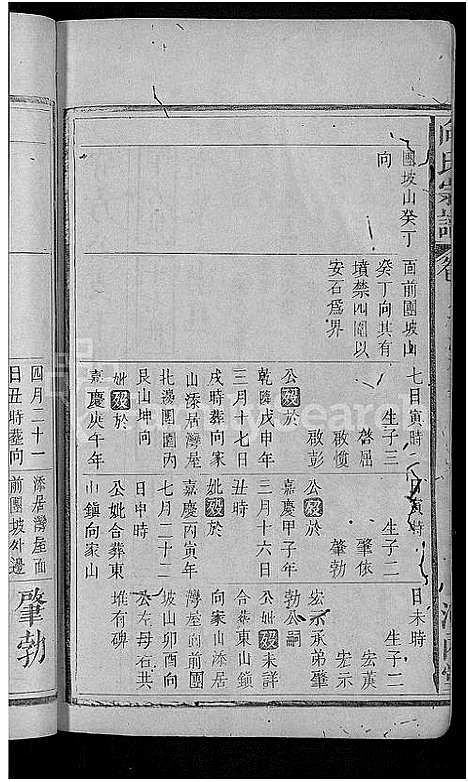 向氏宗譜
團坡山癸丁
向
面前團坡山
癸丁向其有
墳禁四圍以
安石為界
七日寅時
生子三
啓屈
啟慎
啟彭
公殁於
乾隆戊申年
三月十七日
戌時葬向家
山添居灣屋
北邊團園内
艮山坤向
妣殁於
嘉慶庚午年
日寅時
生子二
肇依
肇勃
公殁於
嘉慶甲子年
三月十六日
丑時
妣殁於
嘉慶丙寅年
七月二十二
日申時
公妣合葬東
山鎮向家山
日未時
生子二
宏蓂
宏示
宏示承弟肇
勃公嗣
公妣殁未詳
合葬東山鎮
向家山添居
灣屋向
坡山卯酉向
公左母右共
堆有碑
四月二十一
日丑時葬向
添居灣屋面
前團坡外邊
肇勃